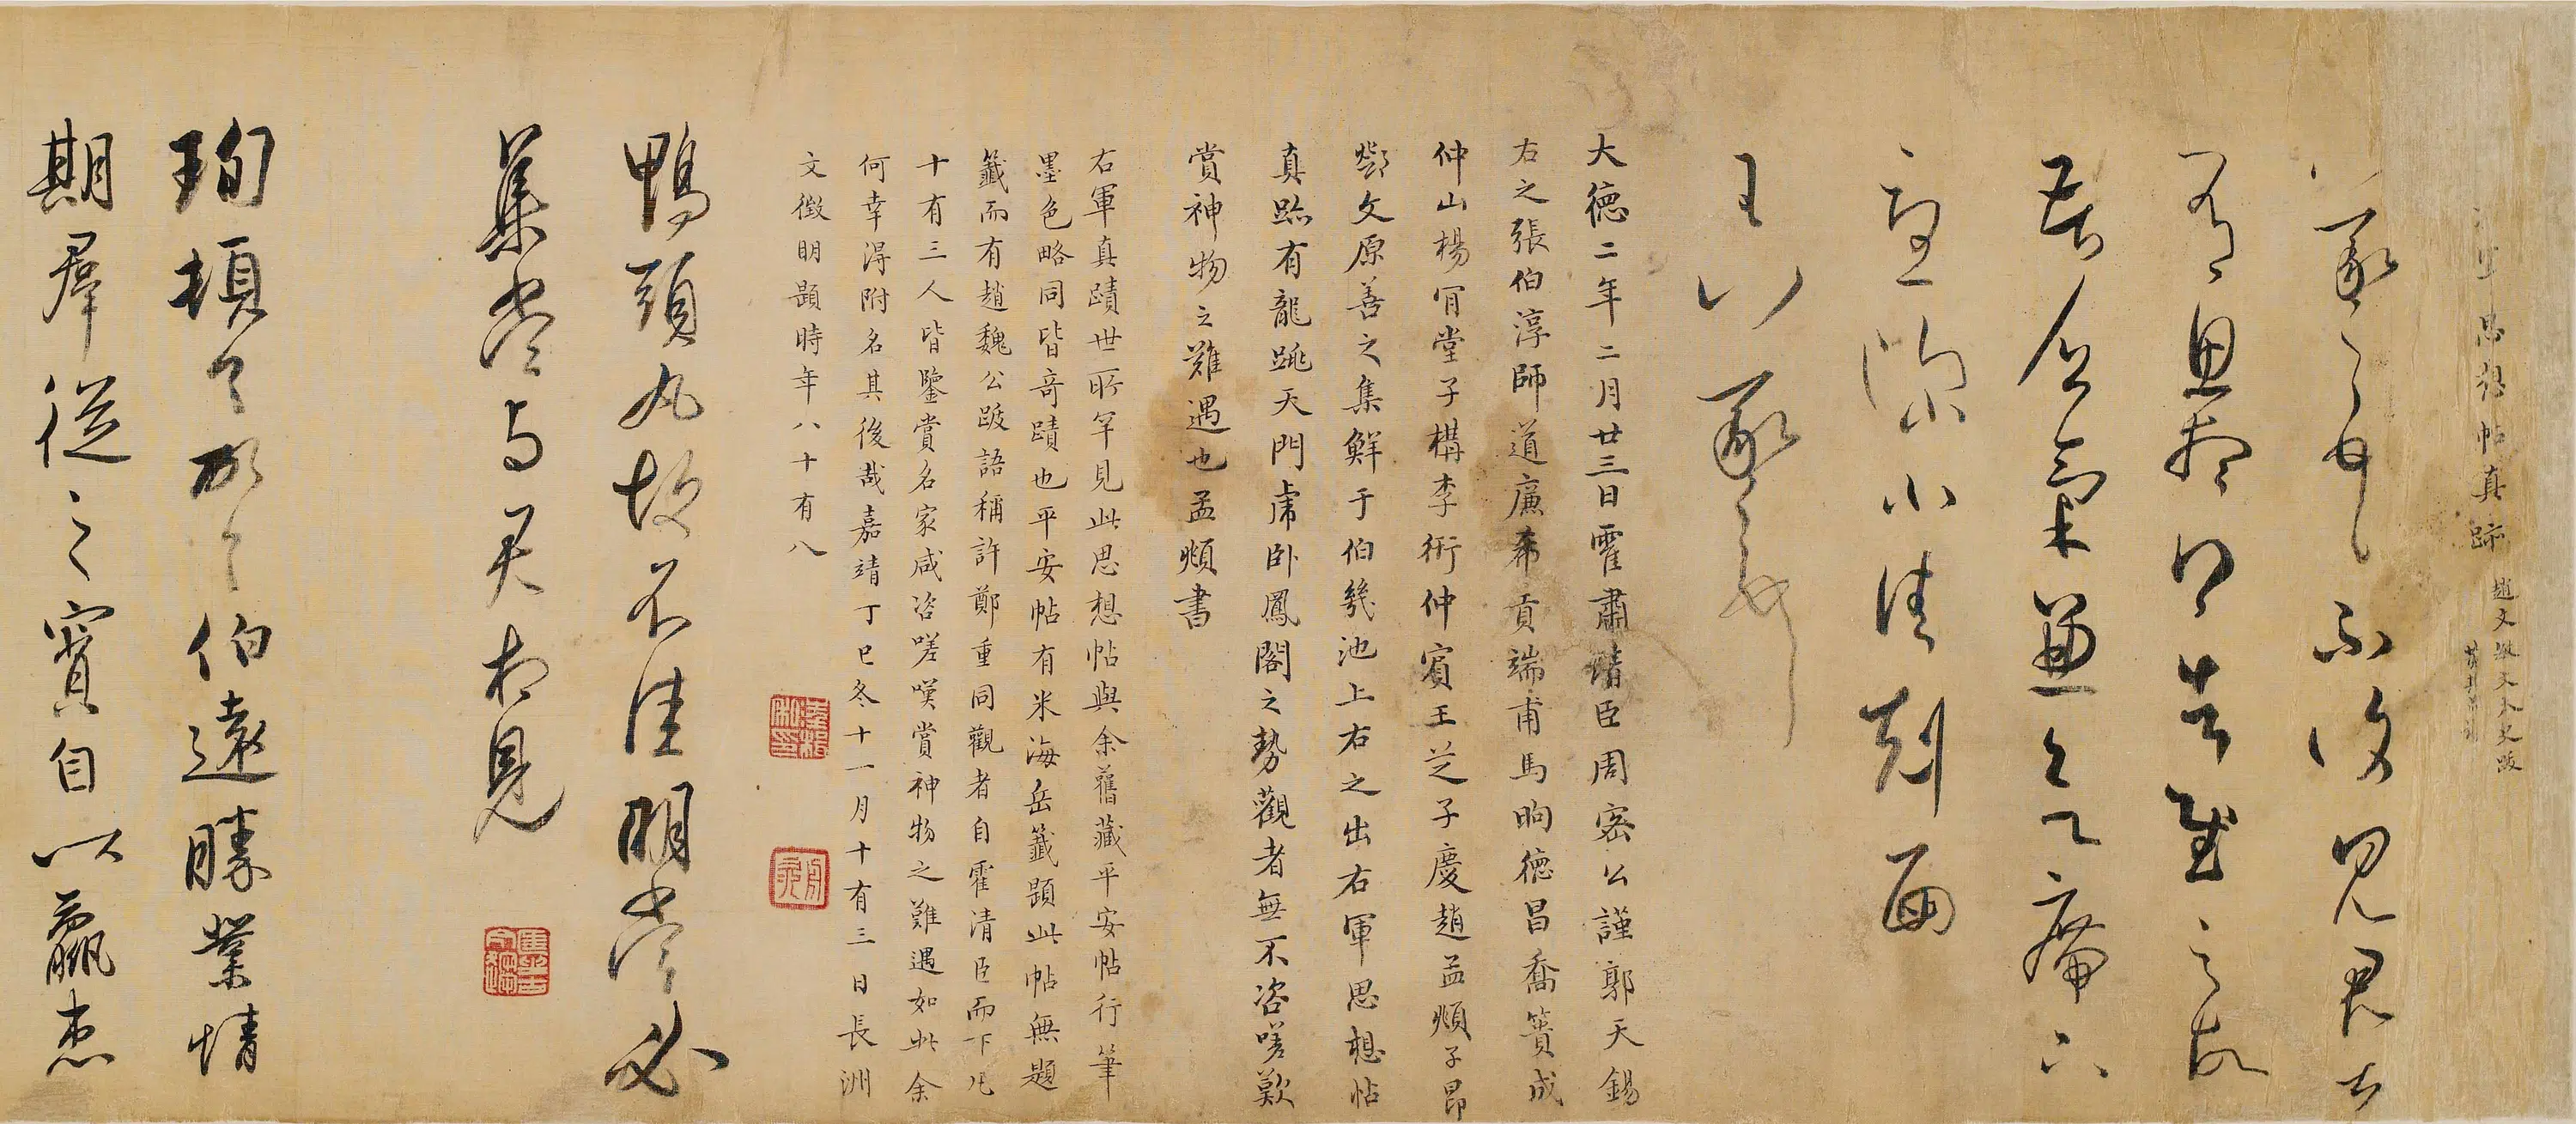 思想帖真跡
趙文敏文太史跋
羲之 不復見君甚
有思想得告慰之故
氣兼之
小佳剋面
王 羲之
大德二年二月廿三日霍肅清臣周密公謹郭天錫
右之張伯淳師道廉希貢端甫馬昫德昌喬簣成
仲山楊肎堂子構李衎仲賓王芝子慶趙孟頫子昂
鄧文原善之集鮮于伯幾池上右之出右軍思想帖
真跡有龍跳天門虎卧鳳閣之勢觀者無不咨嗟歎
賞神物之難遇也孟頫書
右軍真蹟世所罕見此思想帖與余舊藏平安帖行筆
墨色略同皆奇蹟也平安帖有米海岳籤題此帖無題
籤而有趙魏公跋語稱許鄭重同觀者自霍清臣而下凡
十有三人皆鑒賞名家咸咨嗟嘆賞神物之難遇如此余
何幸得附名其後哉嘉靖丁巳冬十一月十有三日長洲
文徵明題時年八十有八
鴨頭丸故不佳明當必
集當与君相見
珣頓首頓首伯遠勝業情
期群從之寶自以羸患